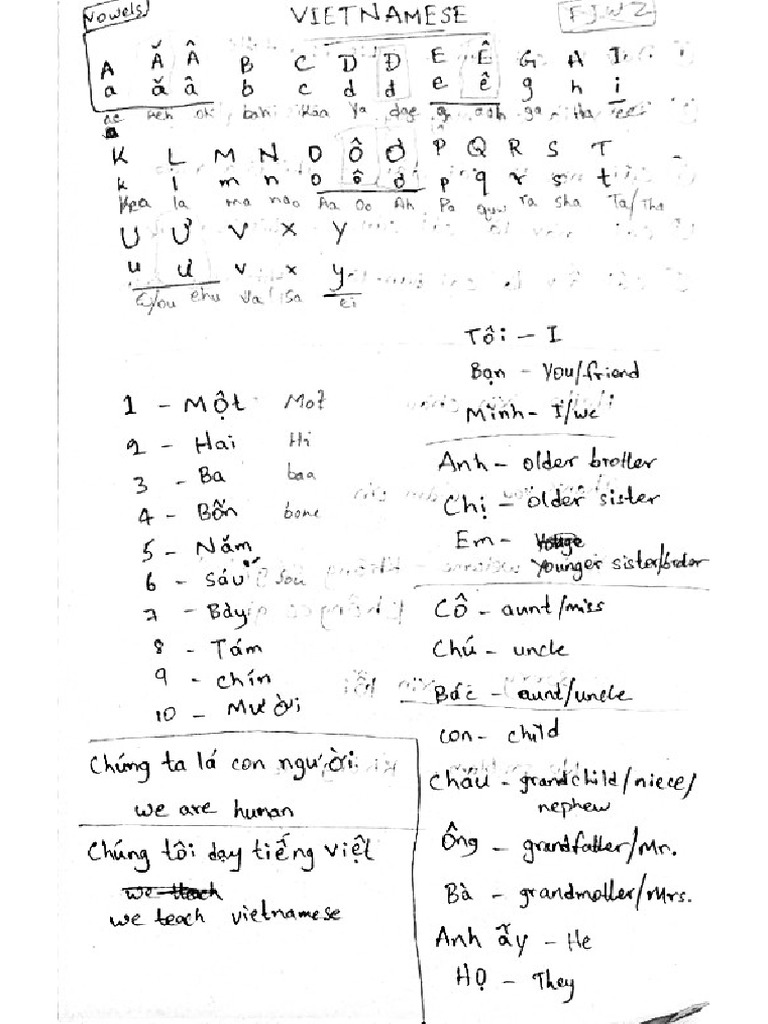 Vowels
VIETNAMESE
FJWZ
A Ă Â B C D Đ E Ê G H I
a ă â b c d đ e ê g h i
K L M N O Ô Ơ P Q R S T
k l m n o ô ơ p q r s t
Kaa la ma nao Aa Oo Ah Pa quw ra sha Ta/Tha
U Ư V X Y
u ư v x y
ehu Va isa ei
Tôi - I
Bạn - You/friend
Mình - I/we
1 - Một Mot
2 - Hai Hi
3 - Ba baa
4 - Bốn bone
5 - Nắm
6 - Sáu Sou
7 - Bảy
8 - Tám
9 - chín
10 - Mười
Anh - older brotler
Chị - older sister
Em - Younger sister/broder
Cô - aunt/miss
Chú - uncle
Bác - aunt/uncle
con - child
Cháu - grandchild/niece/
nephew
Ông - grandfatler/Mr.
Bà - grandmotler/Mrs.
Anh ấy - He
Họ - They
Chúng ta lá con người
we are human
Chúng tôi dạy tiếng việt
we teach
we teach vietnamese